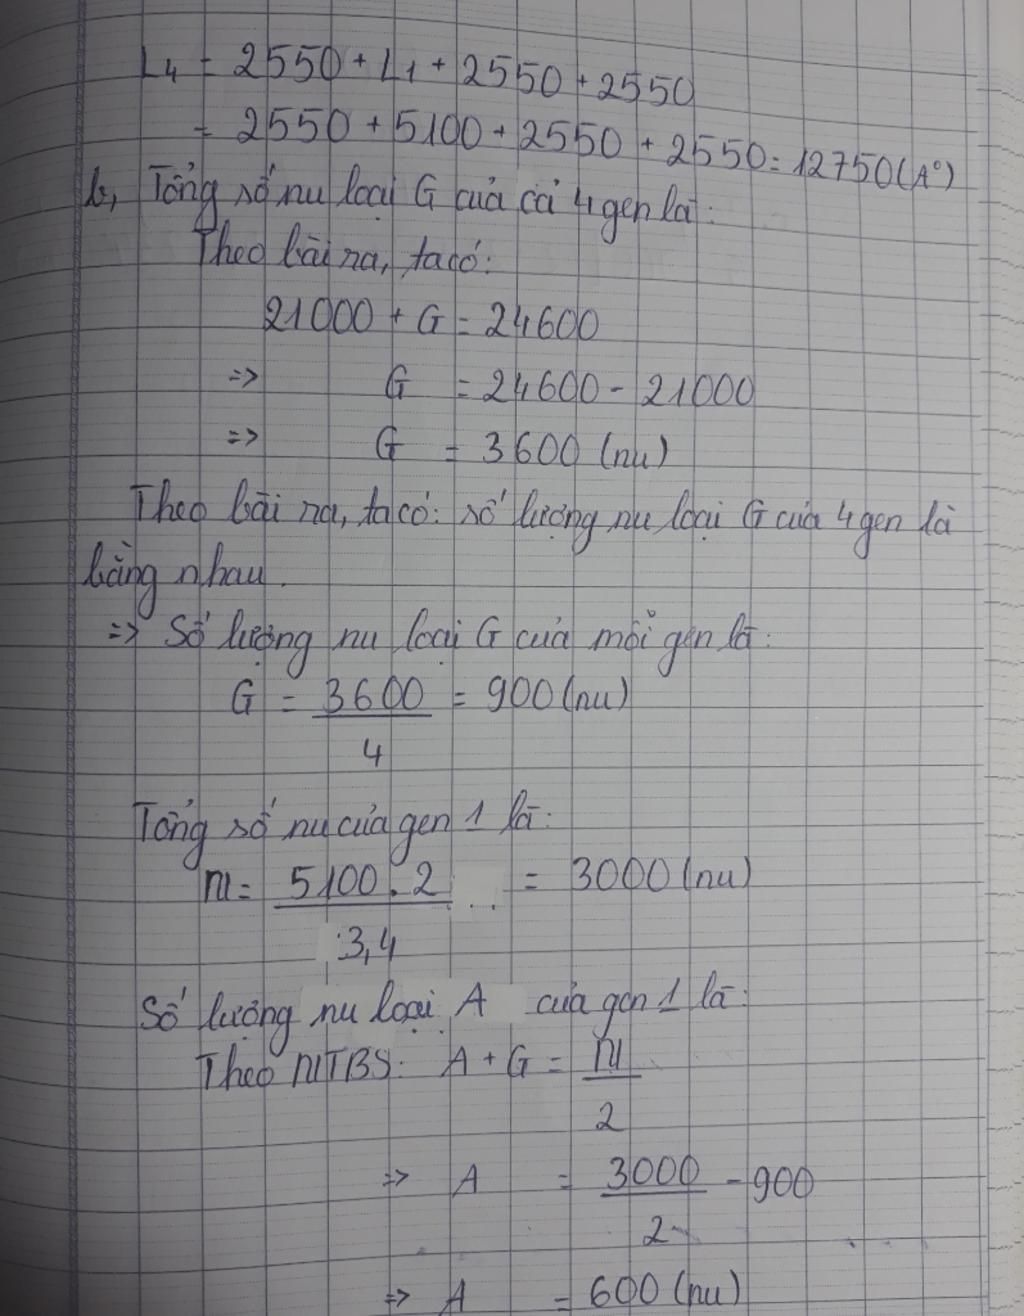 L₄ = 2550 + L₁ + 2550 + 2550
= 2550 + 5100 + 2550 + 2550 = 12750 (A°)
b, Tổng số nu loại G của cả 4 gen là:
Theo bài ra, ta có:
21000 + G = 24600
=> G = 24600 - 21000
=> G = 3600 (nu)
Theo bài ra, ta có: số lượng nu loại G của 4 gen là
bằng nhau.
=> Số lượng nu loại G của mỗi gen là:
G = 3600 = 900 (nu)
4
Tổng số nu của gen 1 là:
N = 5100.2 = 3000 (nu)
3,4
Số lượng nu loại A của gen 1 là:
Theo NTBS: A + G = N
2
=> A = 3000 - 900
2
=> A = 600 (nu)